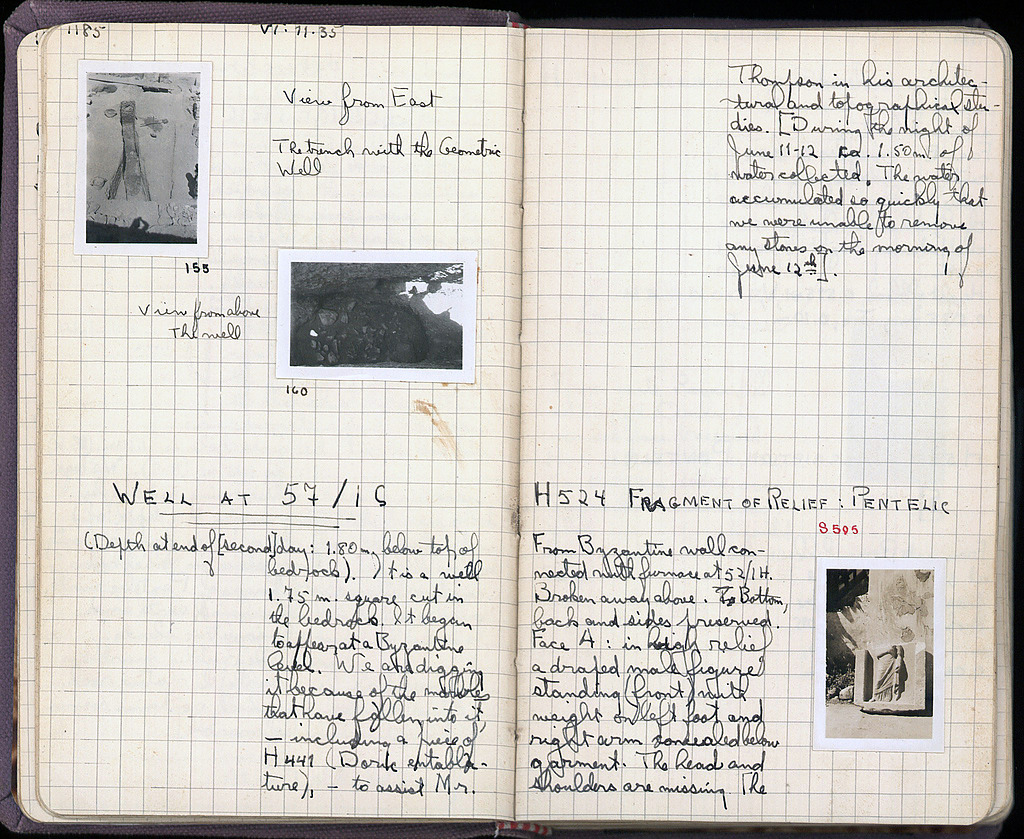 1185
VI·11·35
View from East
The trench with the Geometric
Well
155
View from above
The well
160
WELL AT 57/ΙΣ
(Depth at end of [second] day: 1.80 m. below top of
bedrock). It is a well
1.75 m. square cut in
the bedrock. It began
to appear at a Byzantine
level. We are digging
it because of the marbles
that have fallen into it,
– including a piece of
H 441 (Doric entabla-
ture), – to assist Mr.
Thompson in his architec-
tural and topographical stu-
dies. [During the night of
June 11-12 ca. 1.50 m. of
water collected. The water
accumulated so quickly that
we were unable to remove
any stones on the morning of
June 12th].
H 524 FRAGMENT OF RELIEF : PENTELIC
S 595
From Byzantine wall con-
nected with furnace at 52/ΙΗ.
Broken away above. Bottom,
back and sides preserved.
Face A : in high relief
a draped male figure
standing (front) with
weight on left foot and
right arm concealed below
garment. The head and
shoulders are missing. The